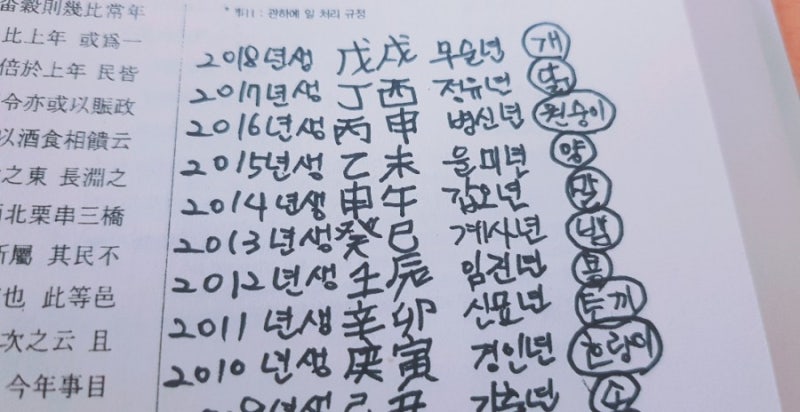 穀則幾比常年
比上年 或爲一
倍於上年 民皆
令亦或以賑政
以酒食相饋云
之東 長淵之
北栗串三橋
所屬 其民不
也 此等邑
次之云 且
今年事目
: 관하에 일 처리 규정
2018년생 戊戌 무술년 개
2017년생 丁酉 정유년 닭
2016년생 丙申 병신년 원숭이
2015년생 乙未 을미년 양
2014년생 申午 갑오년 말
2013년생 癸巳 계사년 뱀
2012년생 壬辰 임진년 용
2011년생 辛卯 신묘년 토끼
2010년생 庚寅 경인년 호랑이
년생 己丑 기축년 소